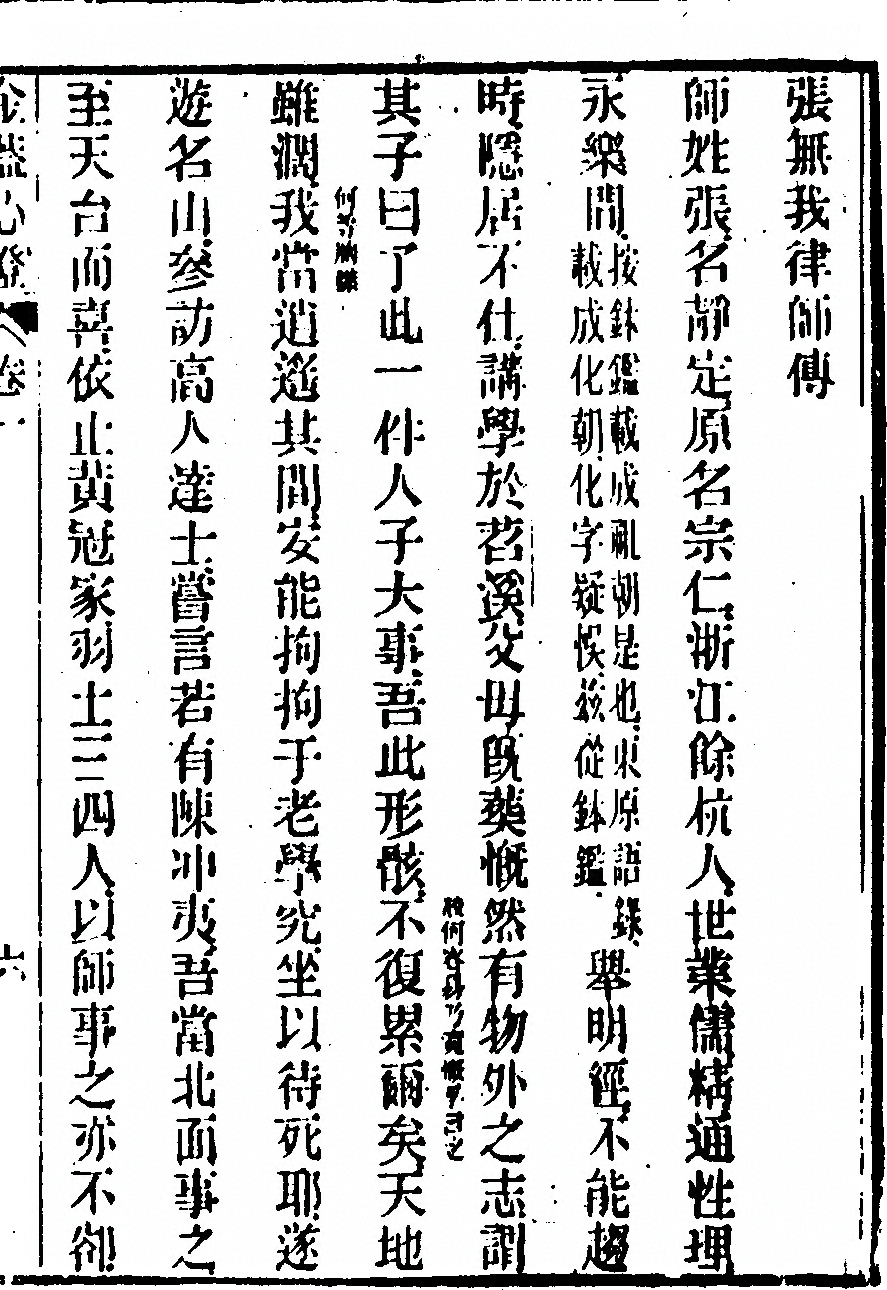 張無我律師傳
師姓張名靜定原名宗仁浙江餘杭人世業儒精通性理
永樂間
按鉢鑑載成化朝是也東原語錄
載成化朝化字疑悞茲從鉢鑑
舉明經不能趨
時隱居不仕講學於苕溪父母既葬慨然有物外之志謂
其子曰了此一件人子大事吾此形骸不復累爾矣天地
何等瀟灑
雖濶我當逍遙其間安能拘拘于老學究坐以待死耶遂
遊名山參訪高人達士嘗言若有陳冲夷吾當北面事之
至天台而喜依止黃冠家羽士三四人以師事之亦不卻
金蓋心燈 卷一
六